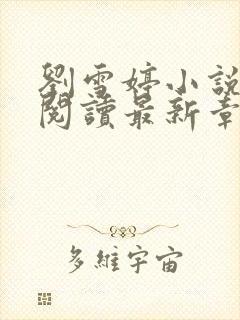 劉雪婷小說
閱讀最新章
多維宇宙